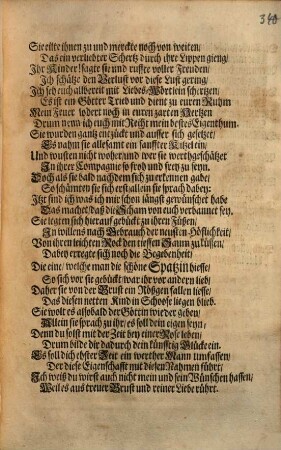 340
Sie eilte ihnen zu und merckte noch von weiten,
Das ein verliebter Schertz durch ihre Lippen gieng,
Ihr Kinder! sagte sie und ruffte voller Freuden,
Ich schätze den Verlust vor diese Lust gering,
Ich seh euch allbereit mit Liebes-Wörtlein schertzen,
Es ist ein Götter Trieb und dient zu euren Ruhm
Mein Feuer lodert noch in euren zarten Hertzen
Drum nenn ich euch mit Recht mein bestes Eigenthum.
Sie wurden gantz entzückt und ausser sich gesetzet,
Es nahm sie allesamt ein sanffter Kützel ein,
Und wusten nicht woher, und wer sie werthgeschätzet
In ihrer Compagnie so froh und frey zu seyn.
Doch als sie bald nachdem sich zu erkennen gabe,
So schämten sie sich erst, allein sie sprach dabey:
Itzt find ich was ich mir schon längst gewünschet habe
Das machet, daß die Scham von euch verbannet sey.
Sie legten sich hierauf gebückt zu ihren Füssen,
In willens nach Gebrauch der neusten Höflichkeit,
Von ihren leichten Rock den tieffen Saum zu küssen,
Dabey erregte sich noch die Begebenheit,
Die eine, welche man die schöne Spätzin hiesse,
So sich vor sie gebückt, war ihr vor andern lieb,
Daher sie von der Brust ein Rößgen fallen liesse,
Das diesen netten Kind in Schoose liegen blieb.
Sie wolt es alsobald der Göttin wieder geben,
Allein sie sprach zu ihr, es soll dein eigen seyn,
Denn du solst mit der Zeit bey einer Rose leben,
Drum bilde dir dadurch dein künfftig Glücke ein.
Es soll dich ehster Zeit ein werther Mann umfassen,
Der diese Eigenschafft mit diesen Nahmen führt,
Ich weiß du wirst auch nicht mein und sein Wünschen hassen,
Weil es aus treuer Brust und reiner Liebe rührt.